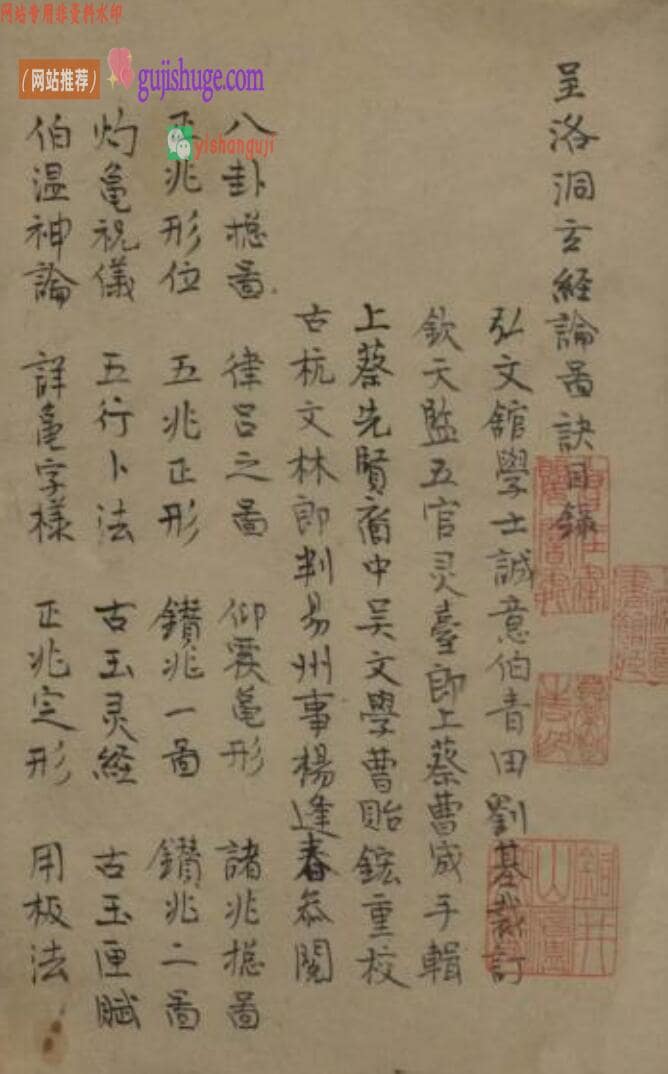 网站专用非资料水印
（网站推荐）
gujishuge.com
yishanguji
呈洛洞玄経論啚訣目錄
弘文舘學士誠意伯青田劉基裁訂
欽天監五官灵臺郎上蔡曹宬手輯
上蔡先賢裔中吴文學曹貽鋐重校
古杭文林郎判易州事楊逢春叅閱
八卦捴啚 律吕之啚 仰龜形 諸兆捴啚
正兆形位 五兆正形 鑚兆一啚 鑚兆二啚
灼龜祝儀 五行卜法 古玉灵経 古玉匣賦
伯温神論 詳龜字様 正兆定形 用板法